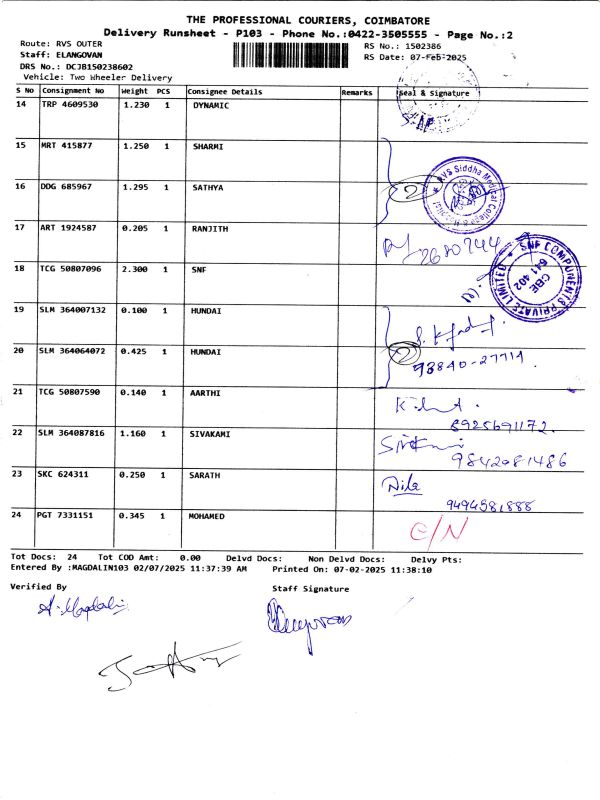 THE PROFESSIONAL COURIERS, COIMBATORE
Delivery Runsheet - P103 - Phone No.:0422-3505555 - Page No.:2
Route: RVS OUTER
RS No.: 1502386
Staff: ELANGOVAN
RS Date: 07-Feb-2025
DRS No.: DCJB150238602
Vehicle: Two Wheeler Delivery
S No Consignment No Weight PCS Consignee Details Remarks Seal & Signature
14 TRP 4609530 1.230 1 DYNAMIC
15 MRT 415877 1.250 1 SHARMI
16 DDG 685967 1.295 1 SATHYA 2 RVS Siddha Medical College & Hospital
17 ART 1924587 0.205 1 RANJITH
18 TCG 50807096 2.300 1 SNF SNF COMPONENTS PRIVATE LIMITED CBE 641 402
19 SLM 364007132 0.100 1 HUNDAI
20 SLM 364064072 0.425 1 HUNDAI 2 93840-27714
21 TCG 50807590 0.140 1 AARTHI 8925691172.
22 SLM 364087816 1.160 1 SIVAKAMI 9842081486
23 SKC 624311 0.250 1 SARATH 9494581888
24 PGT 7331151 0.345 1 MOHAMED C/N
Tot Docs: 24 Tot COD Amt: 0.00 Delvd Docs: Non Delvd Docs: Delvy Pts:
Entered By :MAGDALIN103 02/07/2025 11:37:39 AM Printed On: 07-02-2025 11:38:10
Verified By
Staff Signature
A. Magdalin